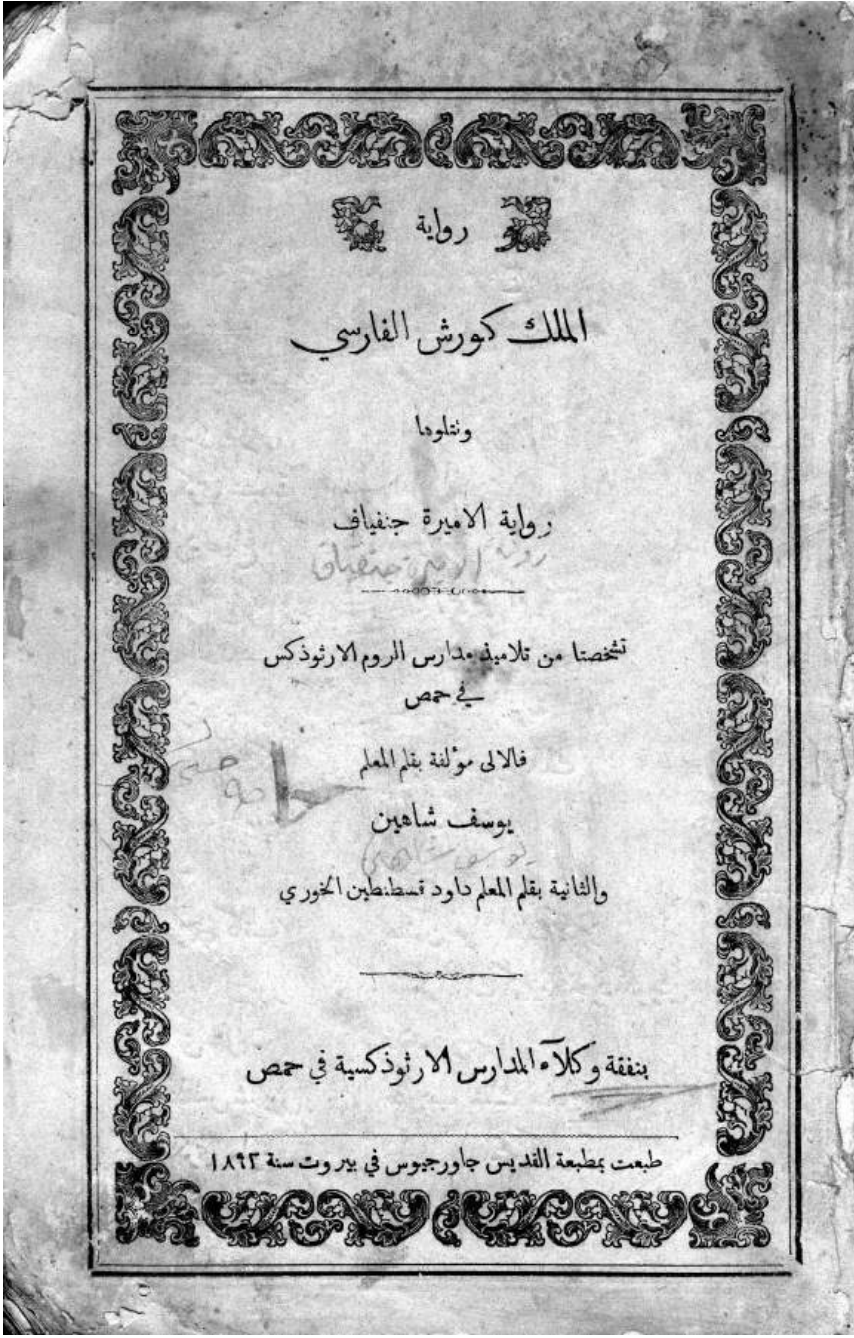 رواية
الملك كورش الفارسي
ونتلوها
رواية الاميرة جنفياف
رواية الاميرة جنفياف
تشخصتا من تلاميذ مدارس الروم الارثوذكس
في حمص
فالالى مؤلفة بقلم المعلم
يوسف شاهين
يوسف شاهين
والثانية بقلم المعلم داود قسطنطين الخوري
بنفقة وكلآء المدارس الارثوذكسية في حمص
طبعت بمطبعة القديس جاورجيوس في بيروت سنة ١٨٩٢